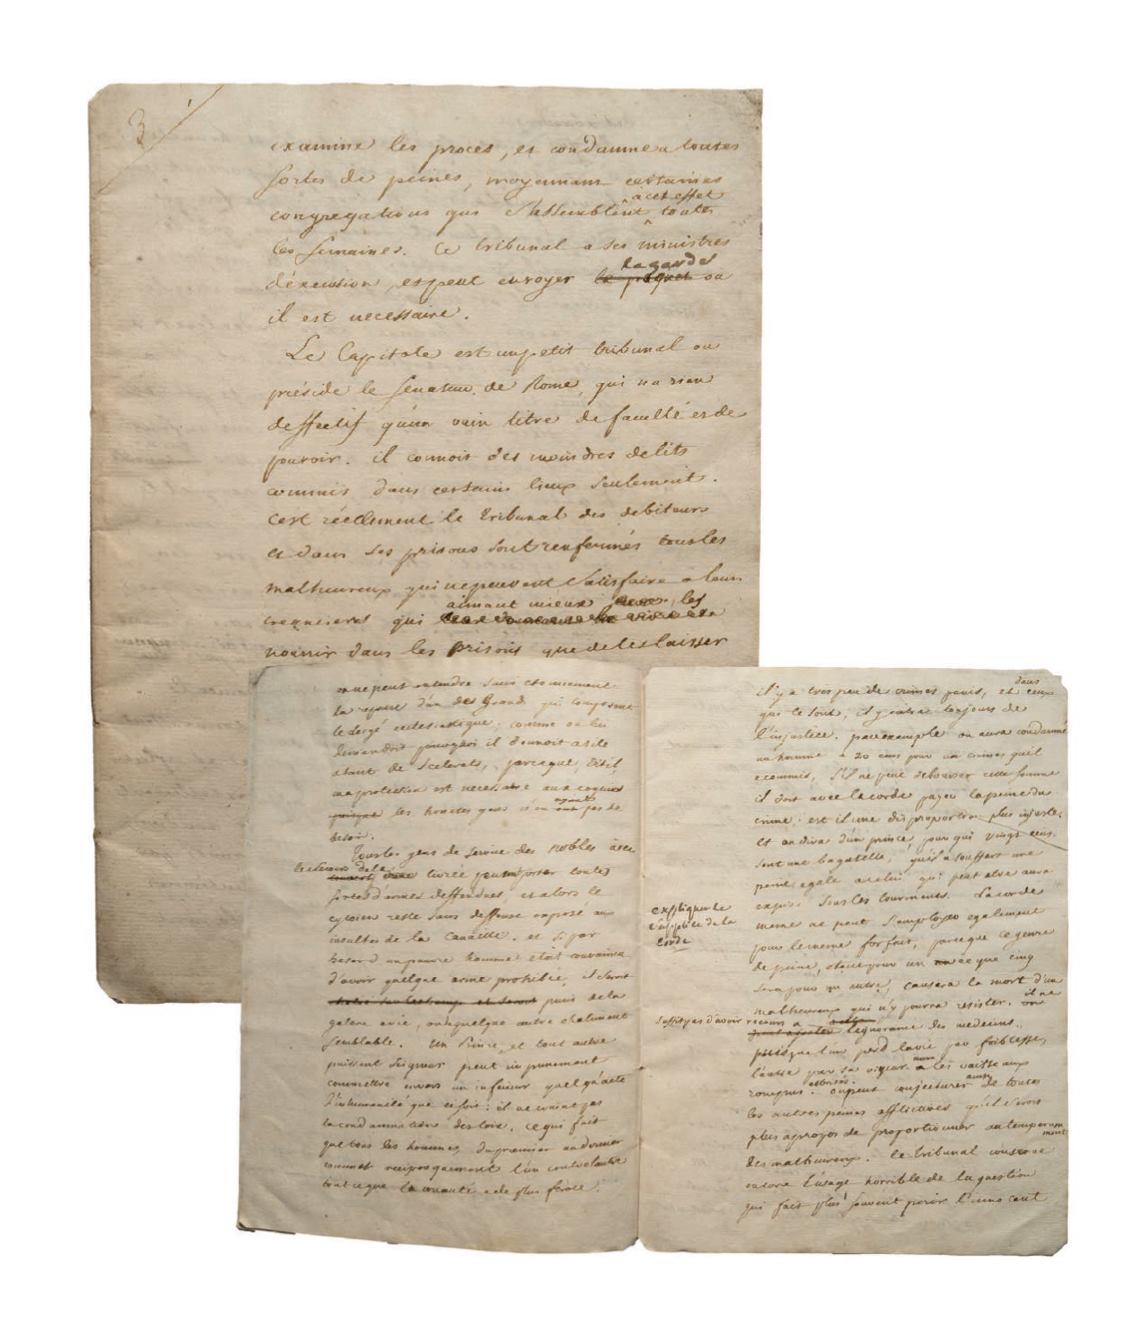 3
examine les proces, et condamne a toutes
sortes de peines, moyennant certaines
a cet effet
congregations qui s'assemblent toutes
les semaines. Ce tribunal a ses ministres
la garde
d'execution, et peut envoyer ou
il est necessaire.
Le Capitole est un petit tribunal ou
préside le senateur de Rome, qui n'a rien
deffectif qu'un vain titre de faculté et de
pouvoir. il connoit des moindres delits
commis dans certains lieux seulement.
C'est réellement le tribunal des debiteurs
et dans ses prisons sont renfermés tous les
malheureux qui ne peuvent satisfaire a leurs
aimant mieux les
creanciers qui
nourrir dans les prisons que de les laisser
on ne peut entendre sans etonnement
la reponse d'un des Grands qui composent
le clergé eclesiastique. comme on lui
demandoit pourquoi il donnoit asile
a tant de scelerats, parceque, dit il,
ma protection est necessaire aux coquins
puisque les honetes gens n'en ont pas de
besoin.
Tous les gens de service des Nobles avec
la livrée peuvent porter toutes
sortes d'armes deffendues, et alors le
citoien reste sans deffense exposé aux
insultes de la canaille. et si par
hasard un pauvre homme etoit convaincu
d'avoir quelque arme prohibée, il seroit
puni de la
galere a vie, ou quelque autre chatiment
semblable. Un Prince, et tout autre
puissant seigneur peut impunement
commettre envers un inferieur quelqu'acte
d'inhumanité que ce soit: il ne craint pas
la condamnation des loix. ce qui fait
que tous les hommes, du premier au dernier
commet reciproquement l'un contre l'autre
tout ce que la cruauté a de plus feroce.
dans
il y a tres peu de crimes punis, et ceux
qui le sont, il y entre toujours de
l'injustice. par exemple on aura condamné
un homme a 20 ecus pour un crime qu'il
a commis, s'il ne peut debourser cette somme
il doit avec la corde payer la peine du
crime. est il une disproportion plus injuste.
et on dira d'un prince, pour qui vingt ecus
sont une bagatelle, qu'il a souffert une
peine egale a celui qui peut etre aura
expiré sous les tourmens. La corde
meme ne peut s'employer egalement
expliquer le
supplice de la
corde
pour le meme forfait, parceque ce genre
de peine, etant pour un ce que cinq
sera pour un autre, causera la mort d'un
malheureux qui n'y pourra resister. il ne
suffit pas d'avoir recours a
l'ignorance des medecins,
puisque l'un perd la vie par foiblesse,
l'autre par sa vigueur a les vaisseaux
rompus. on peut conjecturer aussi de toutes
les autres peines afflictives qu'il seroit
plus apropos de proportionner au temperament
des malheureux. le tribunal conserve
encore l'usage horrible de la question
qui fait plus souvent perir l'innocent